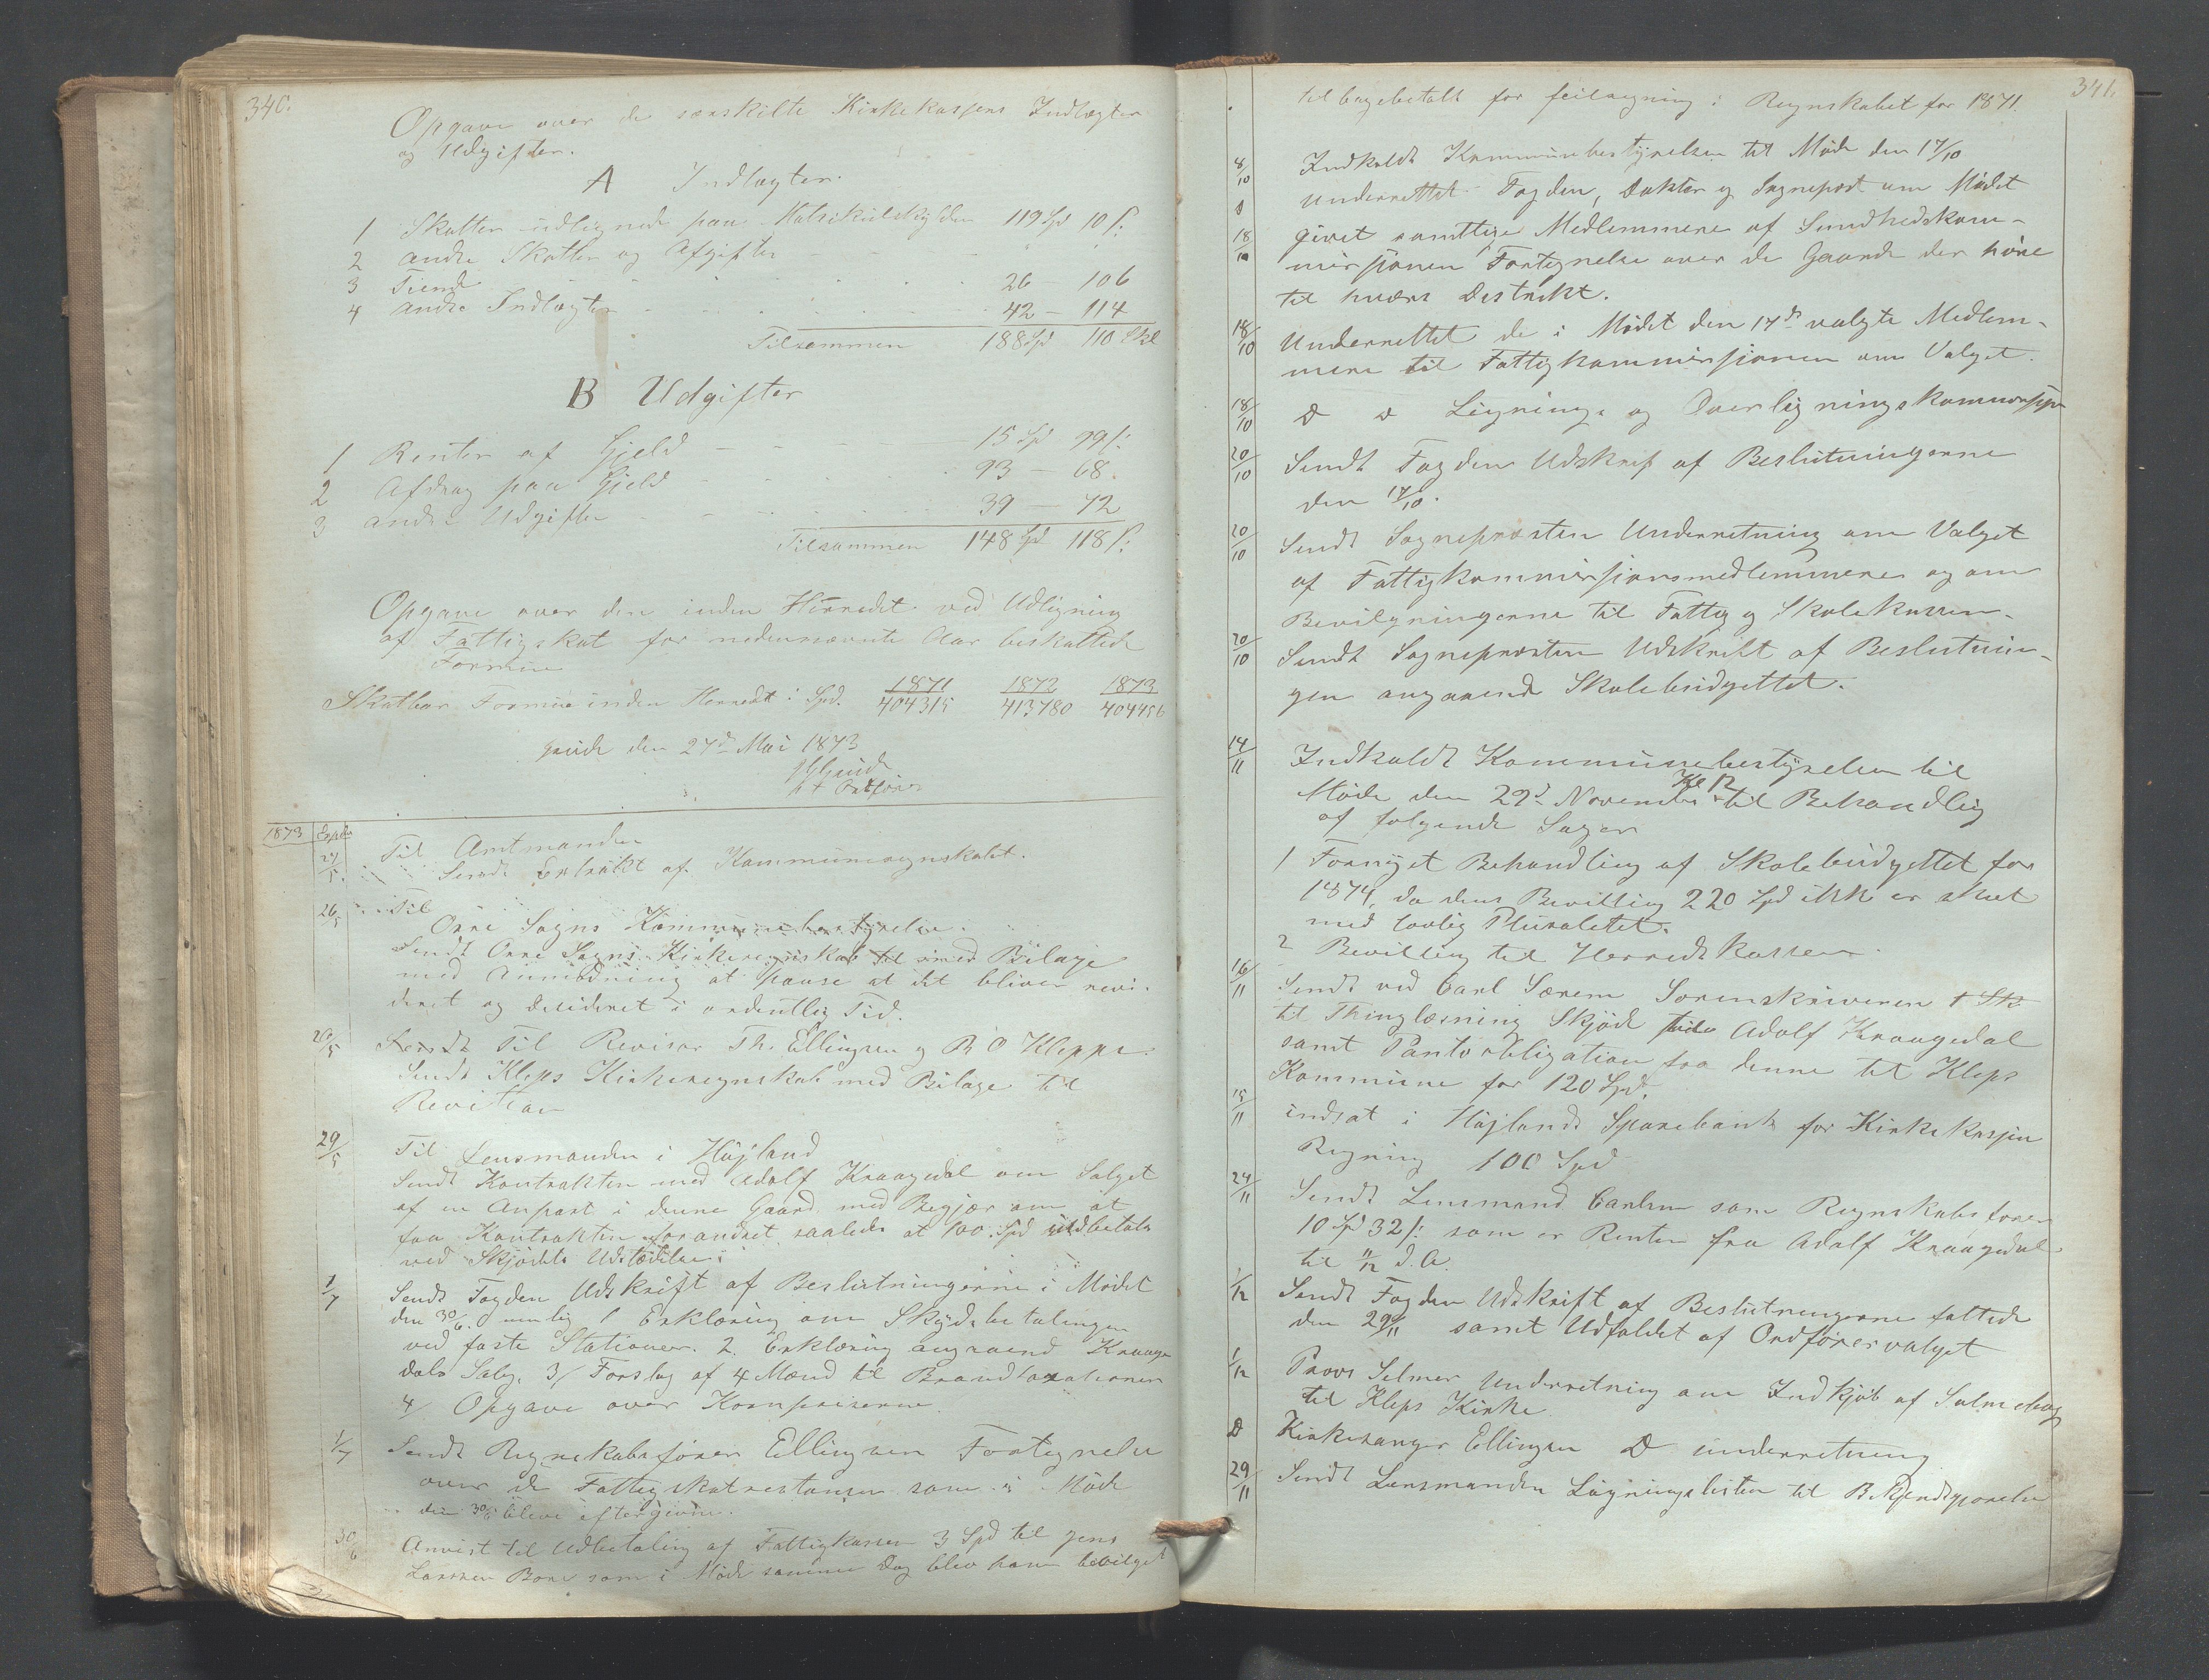 340.
Opgave over de særskilte Kirkekassers Indtægter
og Udgifter.
A Indtægter.
1 Skatter udlignede paa Matrikulskylden 119 Spd 10 s:
2 andre Skatter og Afgifter
3 Tiende 26 — 106
4 andre Indtægter 42 — 114
Tilsammen 188 Spd 110 Skl
B Udgifter
1 Renter af Gjeld 15 Spd 99 s:
2 Afdrag paa Gjeld 93 — 68.
3 andre Udgifter 39 — 72
Tilsammen 148 Spd 118 s:
Opgave over den inden Herredet ved Udligning
af Fattigskat for nedennævnte Aar beskattede
Formue
1871 1872 1873
Skatbar Formue inden Herredet i Spd. 404315 413780 404456
den 27de Mai 1873
1873
27/5 Til Amtmanden
Sendt Extrakt af Kommuneregnskabet.
26/5 Til
Orre Sogns Kommunebestyrelse.
Sendt Orre Sogns Kirkeregnskab til med Bilage
med Anmodning at passe at det bliver revi-
deret og desideret i ordentlig Tid.
29/5 Sendt Til Revisor Th. Ellingsen og B O Kleppe.
Sendt Kleps Kirkeregnskab med Bilage til
Revision
29/5 Til Lensmanden i Højland
Sendt Kontrakten med Adolf Kraagedal om Salget
af en Anpart i denne Gaard med Begjær om at
faa Kontrakten forandret saaledes at 100 Spd udbetales
ved Skjødets Udstædelse:
1/7 Sendt Fogden Udskrift af Beslutningerne i Mødet
den 30/6. nemlig 1 Erklæring om Skydsbetalingen
ved faste Stationer. 2. Erklæring angaaend Kraage
dals Salg. 3/ Forslag af 4 Mænd til Brandtaxationen
4/ Opgave over Kornpriserne.
1/7 Sendt Regnskabsfører Ellingsen Fortegnelse
over de Fattigskatrestanser som i Møde
den 30/6 bleve eftergivne.
30/6 Anvist til Udbetaling af Fattigkassen 3 Spd til Jens
Larssen Bore som i Møde samme Dag blev ham bevilget
341.
tilbagebetalt for feilagning i Regnskabet for 1871.
8/10 Indkaldt Kommunebestyrelsen til Møde den 17/10
underrettet Fogden, Doktor og Sognepræst om Mødet
18/10 givet samttlige Medlemmere af Sundhedskom-
missionen Fortegnelse over de Gaarde der høre
til hvers Distrikt.
18/10 Underrettet de i Mødet den 17de valgte Medlem-
mere til Fattigkommissionen om Valget.
18/10 Lignings og Overligningskommiss
20/10 Sendt Fogden Udskrift af Beslutningerne
den 17/10.
20/10 Sendt Sognepræsten Underretning om Valget
af Fattigkommissionsmedlemmere og om
Bevilgningerne til Fattig og Skolekassen.
20/10 Sendt Sognepræsten Udskrift af Beslutnin-
gen angaaende Skolebudgettet.
14/11 Indkaldt Kommunebestyrelsen til
Møde den 29de November Kl 12 til Behandling
af følgende Sager
1 Fornyet Behandling af Skolebudgettet for
1874, da dens Bevilling 220 Spd ikke er skeet
med lovlig Pluralitet.
2 Bevilling til Herredskassen.
16/11 Sendt ved Carl Særem Sorenskriveren
til Thinglæsning Skjøde Adolf Kraagedal
samt Pantobligation fra denne til Kleps
Kommune for 120 Spd.
15/11 indsat i Højlands Sparebank for Kirkekassens
Regning 100 Spd
24/11 Sendt Lensmand Carlsen som Regnskabsfører
10 Spd 32 s: som er Renten fra Adolf Kraagedal
til 11/12 d. A.
1/12 Sendt Fogden Udskrift af Beslutningerne fattede
den 29/11 samt Udfaldet af Ordførervalget
1/12 Provs Selmer Underretning om Indkjøb af Salmebog
til Kleps Kirke
Kirkesanger Ellingsen underretning
29/11 Sendt Lensmanden Ligningslisten til Bekjendtgjørelse